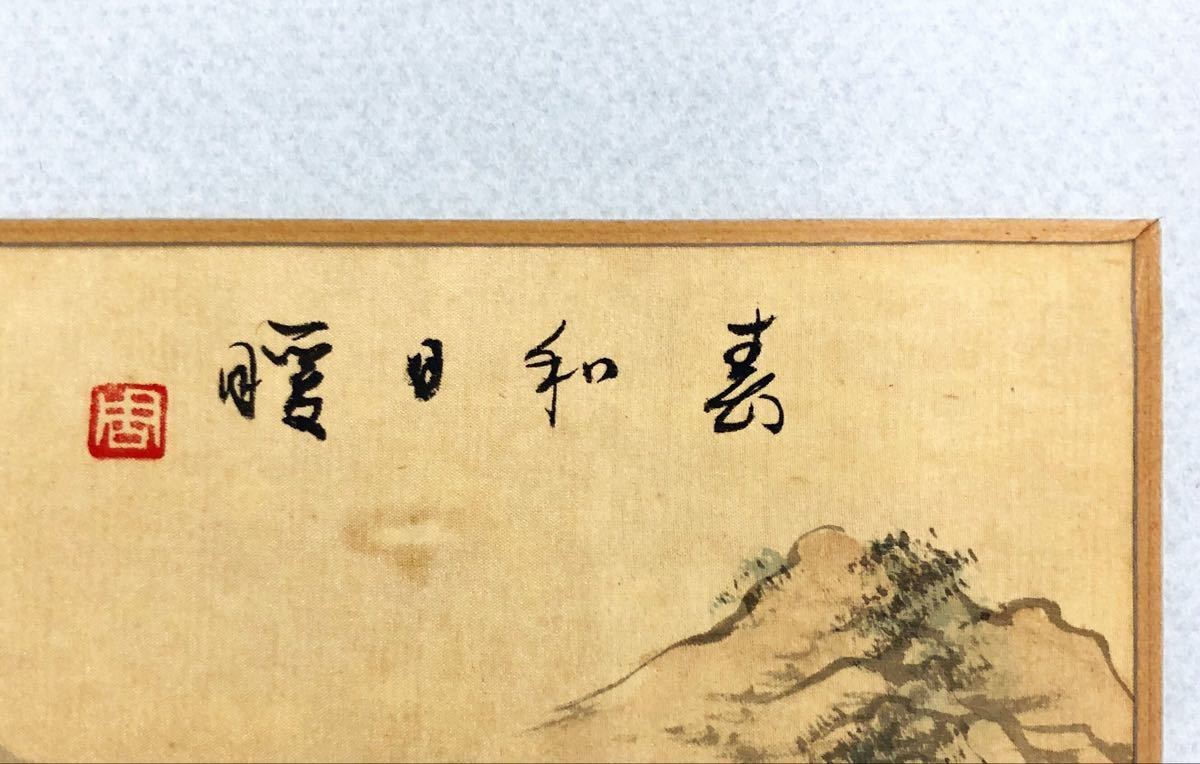 春和日暖
周